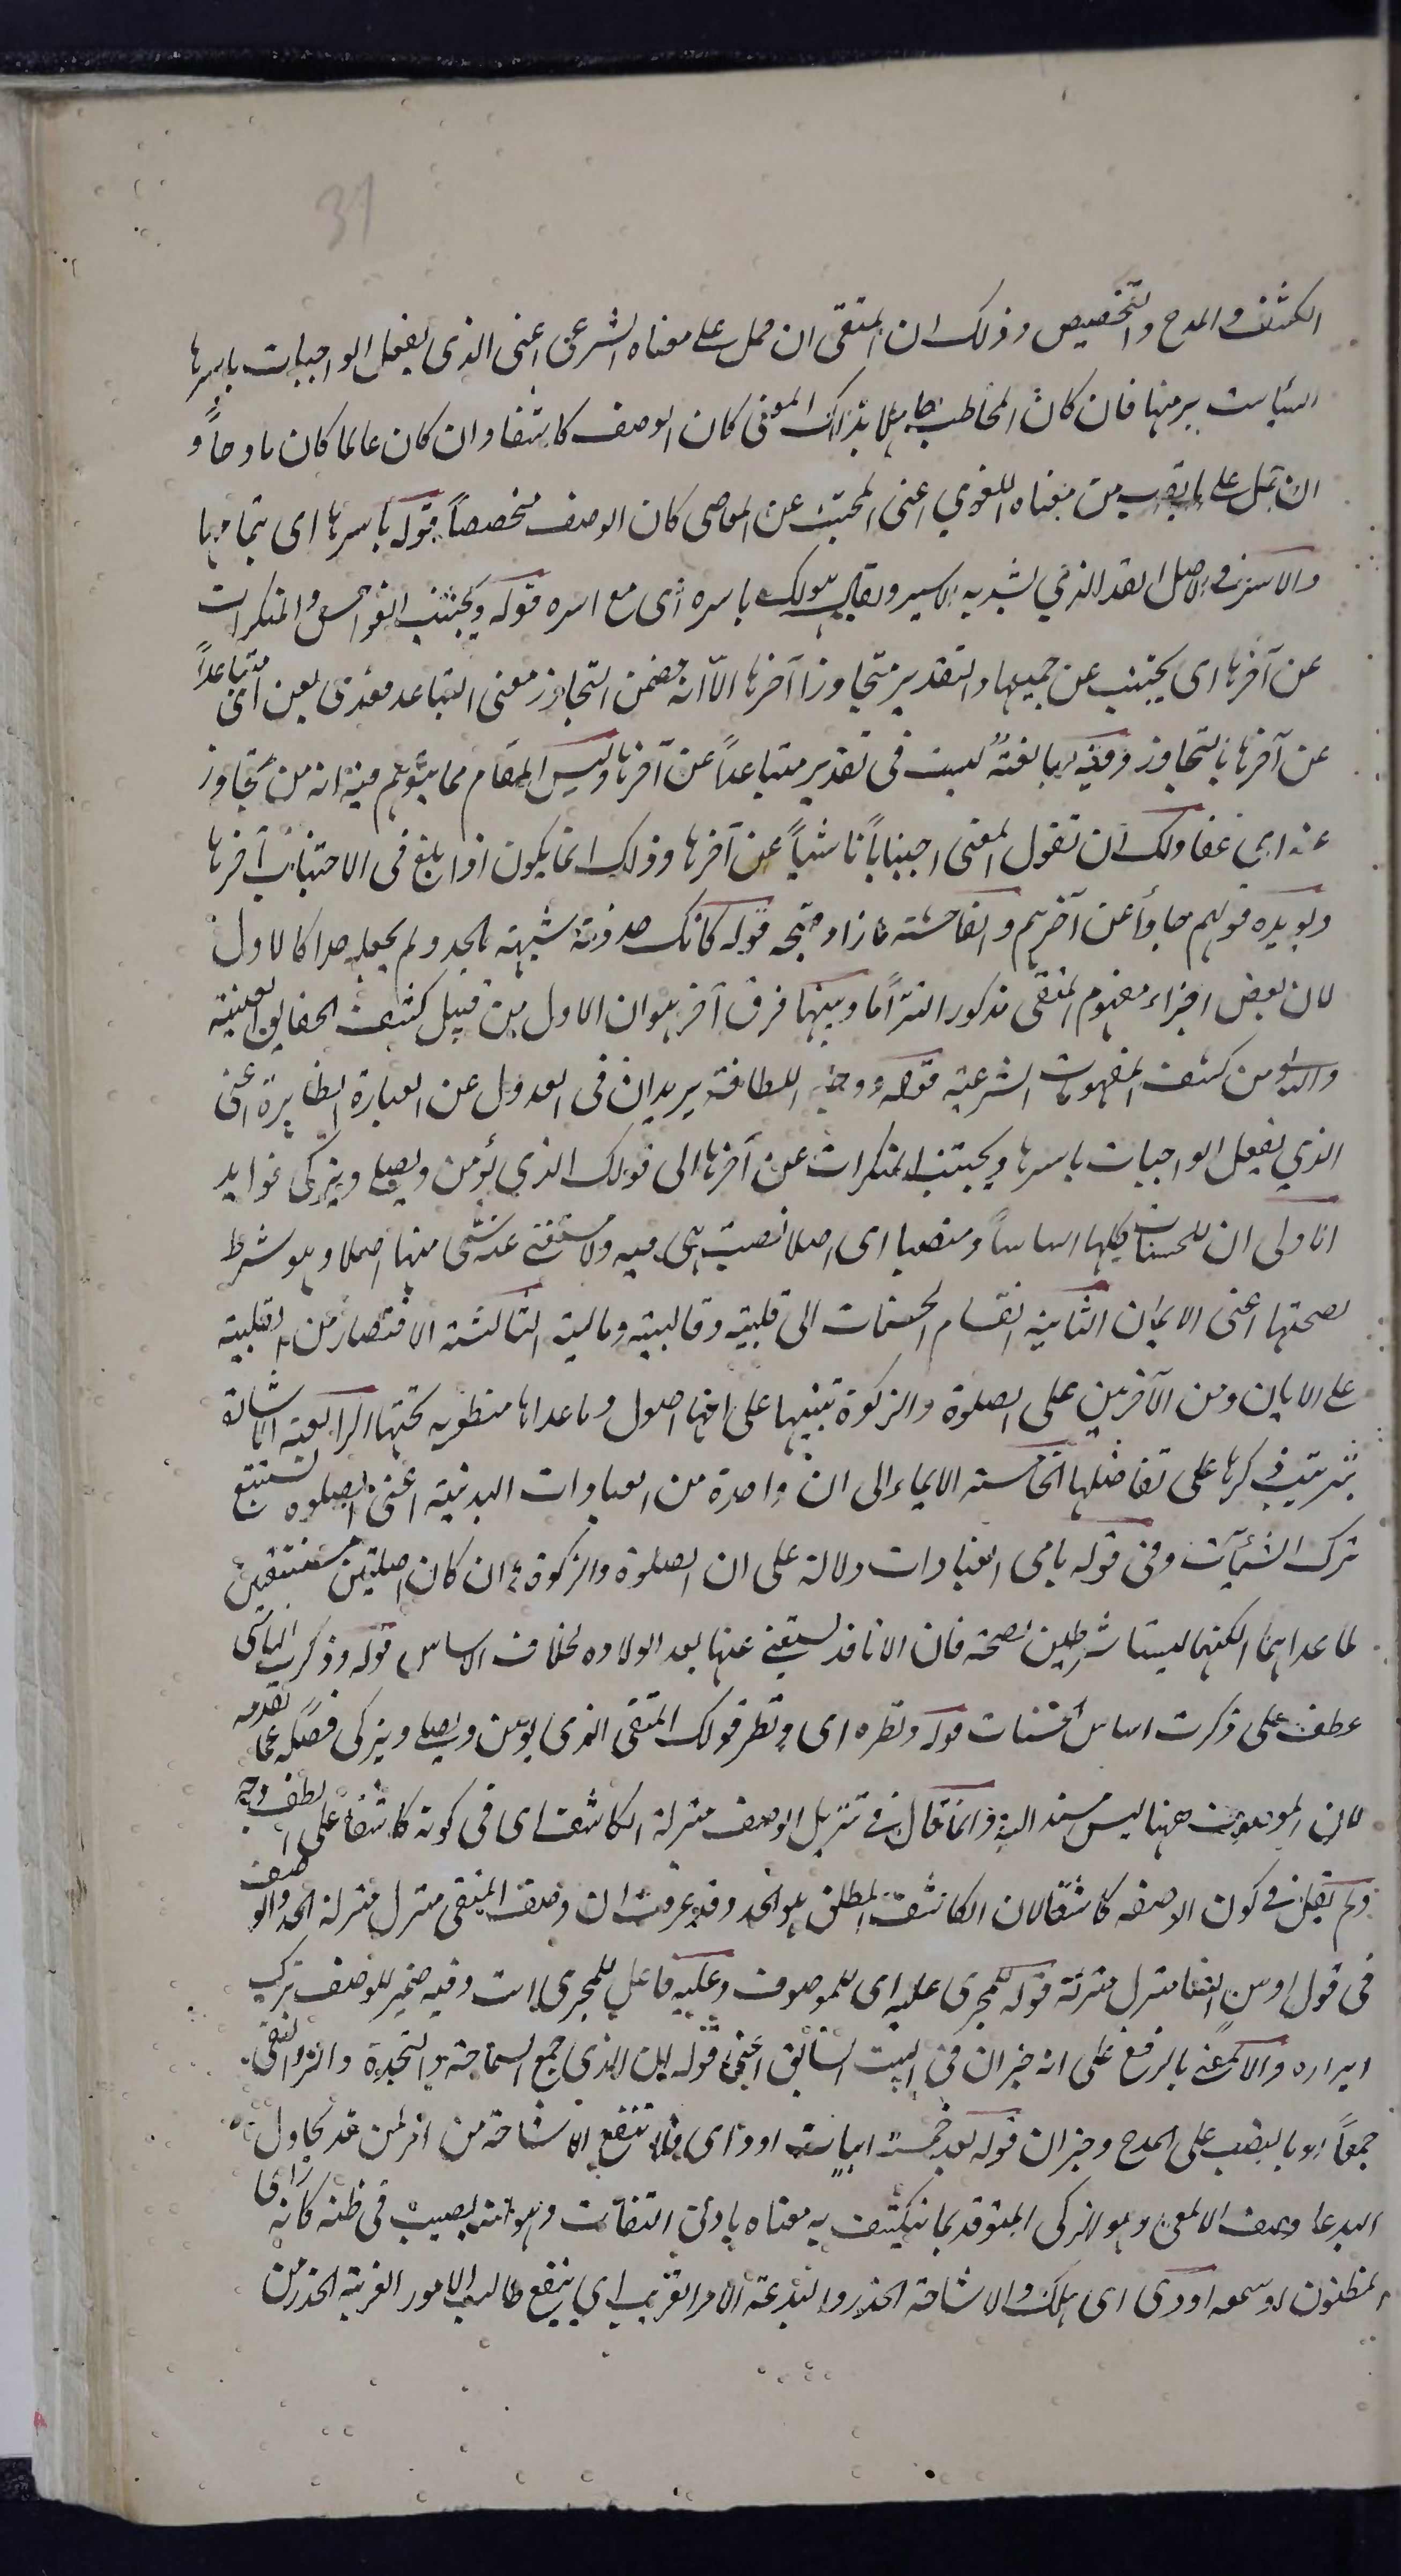 31
الكشف والمدح والتخصيص وذلك ان المتقى ان حمل على معناه الشرعى اعنى الذى يفعل الواجبات باسرها
السيأت برمتها فان كان المخاطب جاهلا بذلك المعنى كان الوصف كاشفا وان كان عالما كان مادحاً و
ان حمل على ما يقرب من معناه اللغوي اعنى المجتنب عن المعاصى كان الوصف مخصصاً قوله باسرها اى بتمامها
والاسر فى الاصل القد الذي يشد به الاسير ويقال هو لك باسره اى مع اسره قوله ويجتنب الفواحش والمنكرات
عن آخرها اى يجتنب عن جميعها والتقدير متجاوزا آخرها الا انه ضمن التجاوز معنى التباعد فعدى بعن اى متباعداً
عن آخرها بالتجاوز وفيه مبالغة ليست فى تقدير متباعداً عن آخرها وليس المقام مما يتوهم فيه انه من تجاوز
عنه اى عفا ولك ان تقول المعنى اجتناباً ناشياً عن آخرها وذلك انما يكون اذا بلغ فى الاجتناب آخرها
ويويده قولهم جاوأ عن آخرهم والفاحشة ما زاد قبحه قوله كانك حد وتة شبهته بالحد ولم يجعله حدا كالاول
لان بعض اجزاء مفهوم المتقى مذكور التزاما وبينهما فرق آخر هو ان الاول من قبيل كشف الحقايق العينية
والثانى من كشف المفهومات الشرعية قوله ووجه اللطافة يريد ان فى العدول عن العبارة الظاهرة اعنى
الذي يفعل الواجبات باسرها ويجتنب المنكرات عن آخرها الى قولك الذي يؤمن ويصلى ويزكى فوايد
الاولى ان للحسنات كلها اساساً ومنصبا اى اصلا نصبت هى فيه ولا يستغنى عنه شى منها اصلا وهو شرط
لصحتها اعنى الايمان الثانية انقسام الحسنات الى قلبية وقالبية ومالية الثالثة الاقتصار من القلبية
على الايمان ومن الآخرين على الصلوة والزكوة تنبيها على انهما اصول وما عداها منطويه تحتها الرابعة الاشارة
بترتيب ذكرها على تفاضلها الخامسة الايماء الى ان واحدة من العبادات البدنية اعنى الصلوه تستتبع
ترك السيأت وفى قوله ماهى العبادات دلالة على ان الصلوة والزكوة وان كان اصلين مستتبعين
لما عداهما لكنهما ليستا شرطين لصحته فان الام قد يستغنى عنها بعد الولاده بخلاف الاساس قوله وذكرت الباقى
عطف على ذكرت اساس الحسنات قوله ونظره اى ونظر قولك المتقى الذى يؤمن ويصلى ويزكى فصله عما تقدمه
لان الموصوف ههنا ليس مسندا اليه وانما قال فى تنزيل الوصف منزلة الكاشف اى فى كونه كاشفا على الطف وجه
ولم يقل فى كون الوصف كاشفا لان الكاشف المطلق هو الحد وقد عرفت ان وصف المتقى منزل منزلة الحد والوصف
فى قول اوس ايضا منزل منزلته قوله المجرى عليه اى للموصوف وعليه فاعل للمجرى است وفيه ضمير للوصف ترك
ابرازه والالمعى بالرفع على انه خبر ان فى البيت السابق اعنى قوله ان الذى جمع السماحة والنجدة والبر والتقى
جمعاً او بالنصب على المدح وخبر ان قوله بعد خمسة ابيات اودى فلا تنفع الاشاحة من امر لمن قد يحاول
البدعا وصف الالمعى وهو الذكى المتوقد بما ينكشف به معناه بادنى التفات وهو انه يصيب فى ظنه كانه راى
المظنون او سمعه اودى اى هلك والاشاحة الحذر والبدعة الامر الغريب اي ينفع طالب الامور الغريبة الحذر من